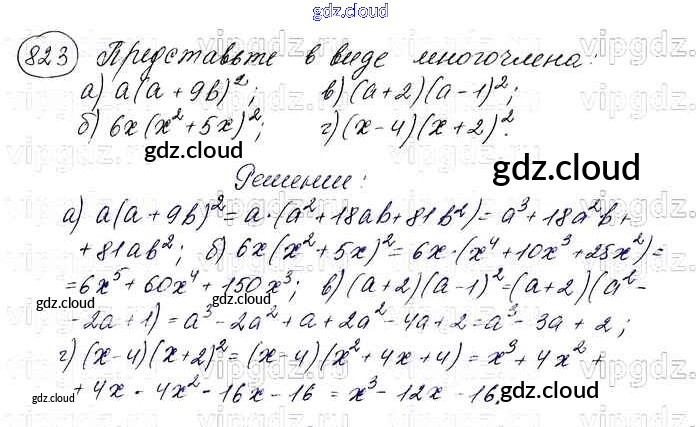 gdz.cloud
823 Представьте в виде многочлена:
а) a(a + 9b)²; в) (a+2)(a-1)²;
б) 6x(x²+5x)²; г) (x-4)(x+2)².
gdz.cloud
gdz.cloud
Решение:
а) a(a+9b)² = a·(a²+18ab+81b²) = a³+18a²b+
+81ab²; б) 6x(x²+5x)² = 6x·(x⁴+10x³+25x²) =
= 6x⁵+60x⁴+150x³; в) (a+2)(a-1)² = (a+2)(a²-
gdz.cloud
gdz.cloud
-2a+1) = a³-2a²+a+2a²-4a+2 = a³-3a+2;
г) (x-4)(x+2)² = (x-4)(x²+4x+4) = x³+4x²+
+4x-4x²-16x-16 = x³-12x-16.
gdz.cloud
gdz.cloud